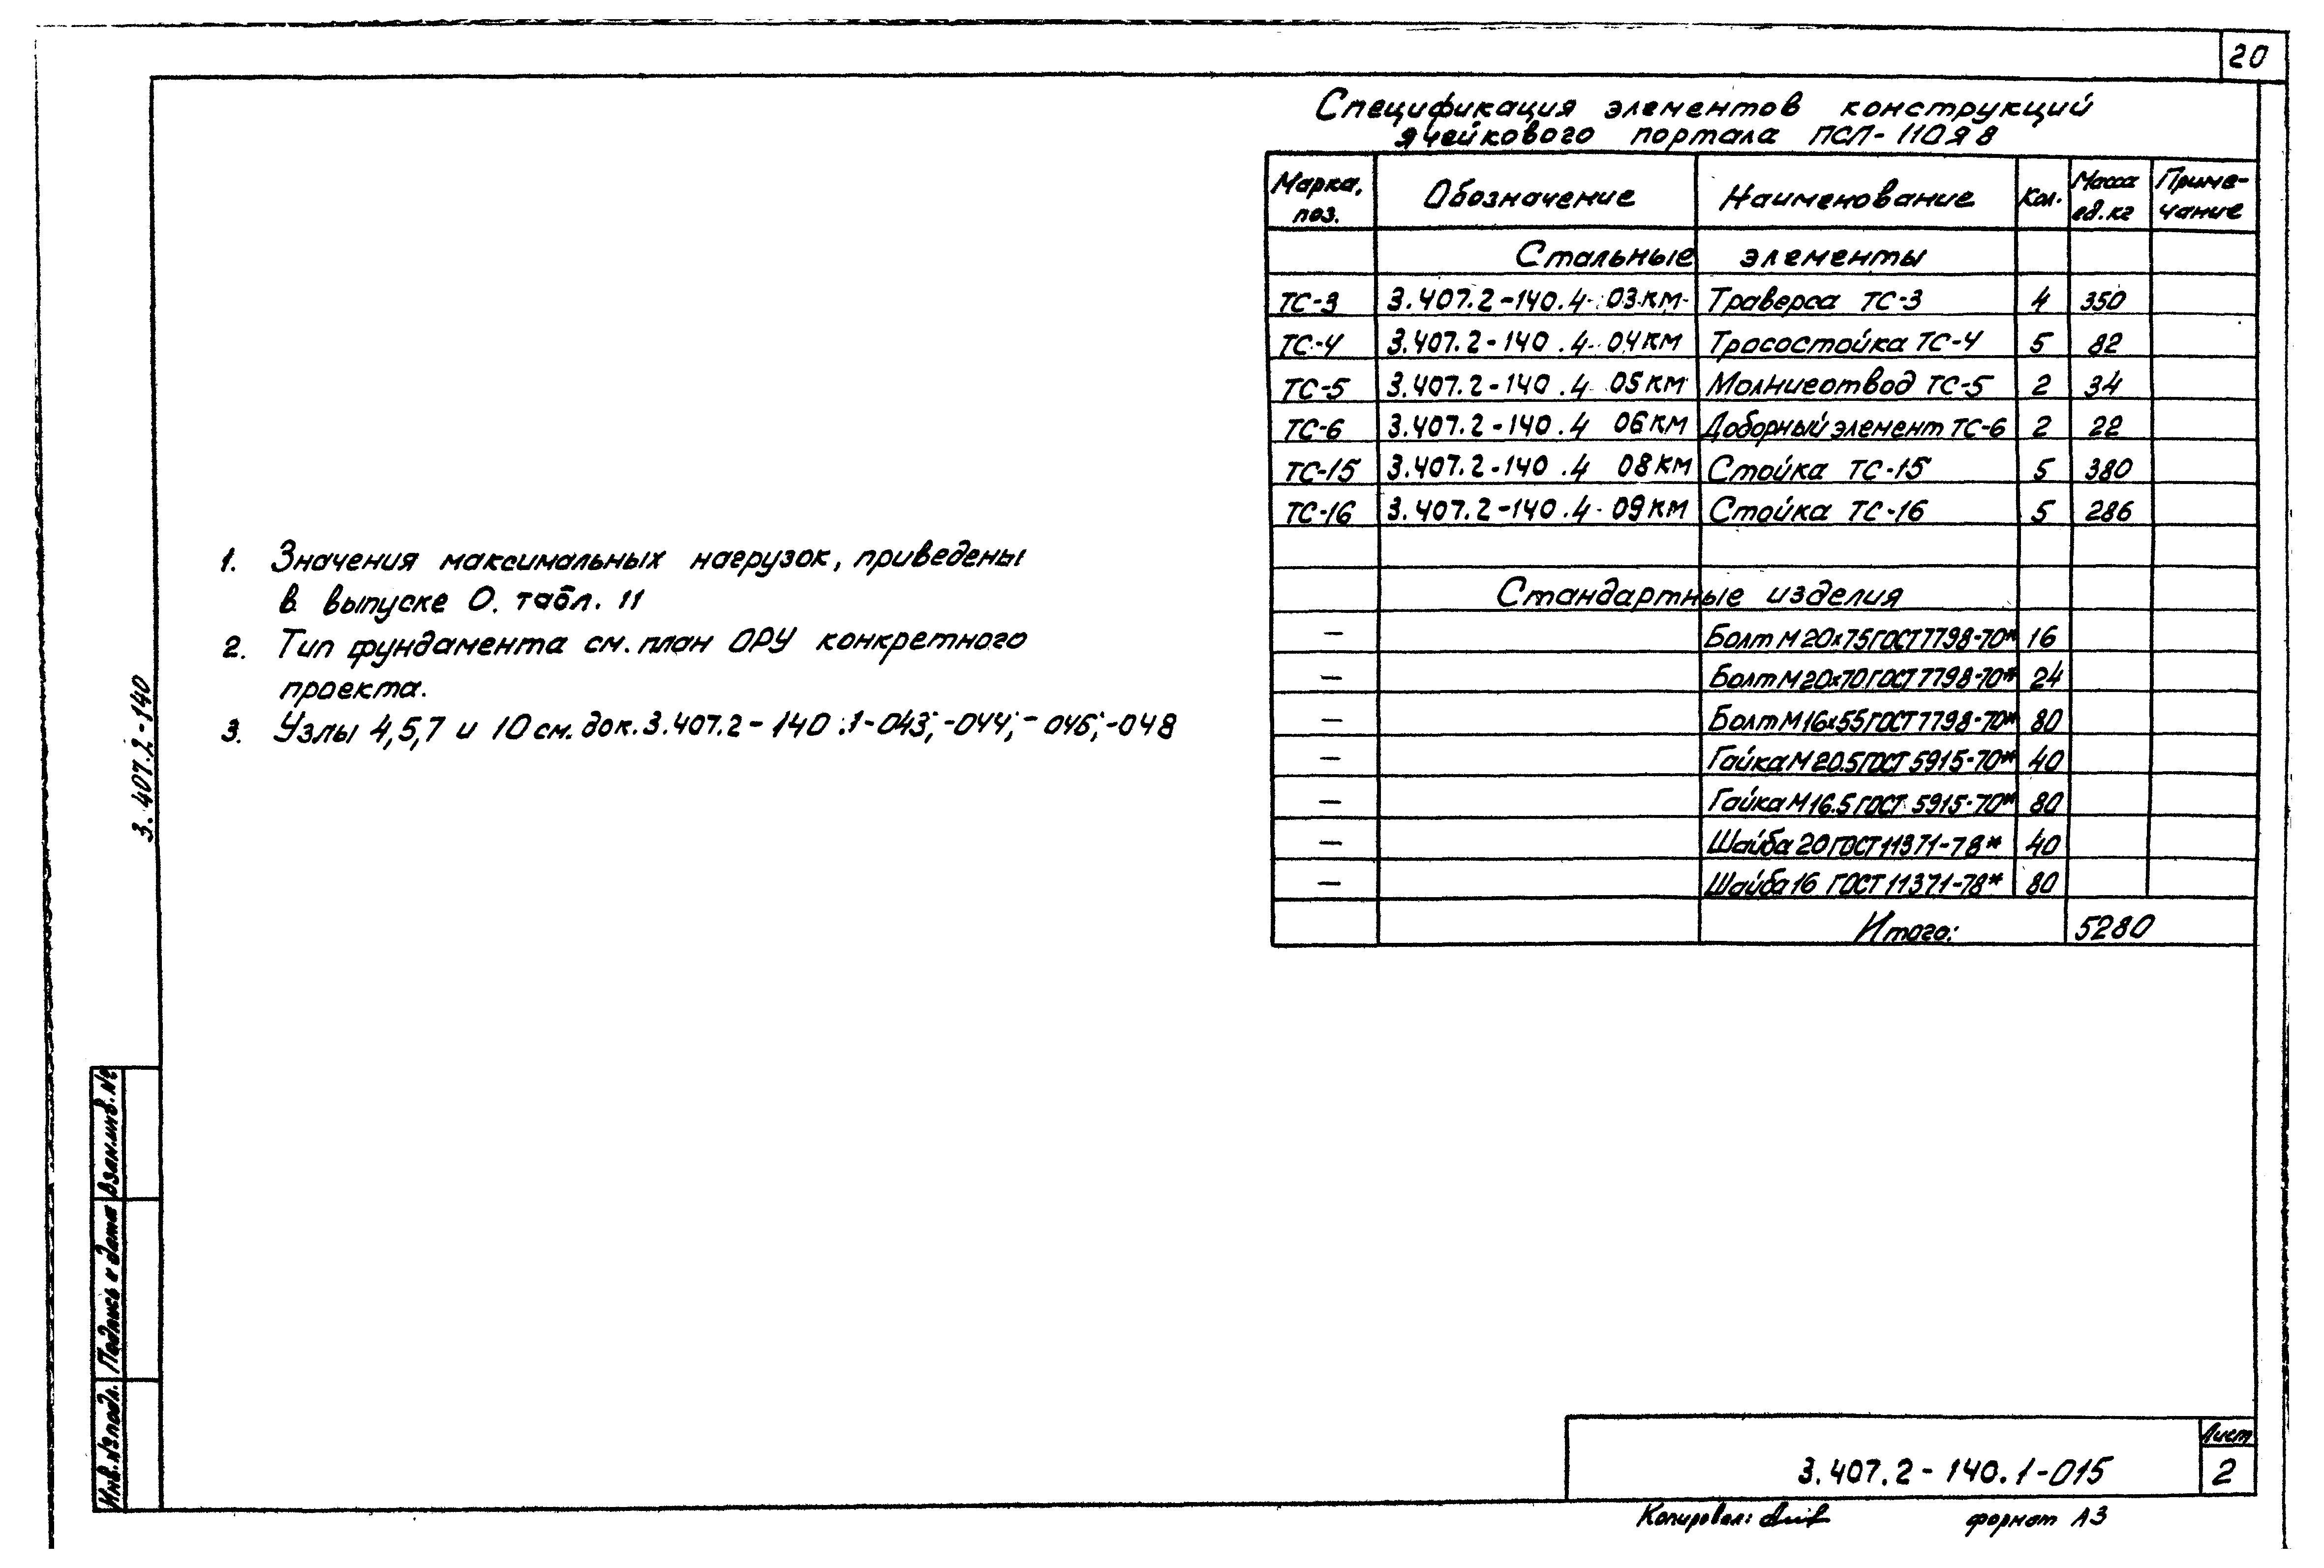 20
Спецификация элементов конструкций
ячейкового портала ПСЛ-110Я8
Марка, поз. Обозначение Наименование Кол. Масса ед.кг Приме-чание
Стальные элементы
ТС-3 3.407.2-140.4- 03КМ Траверса ТС-3 4 350
ТС-4 3.407.2-140.4- 04КМ Тросостойка ТС-4 5 82
ТС-5 3.407.2-140.4 05КМ Молниеотвод ТС-5 2 34
ТС-6 3.407.2-140.4 06КМ Доборный элемент ТС-6 2 22
ТС-15 3.407.2-140.4 08КМ Стойка ТС-15 5 380
ТС-16 3.407.2-140.4- 09КМ Стойка ТС-16 5 286
Стандартные изделия
— Болт М20х75 ГОСТ 7798-70* 16
— Болт М20х70 ГОСТ 7798-70* 24
— Болт М16х55 ГОСТ 7798-70* 80
— Гайка М20.5 ГОСТ 5915-70* 40
— Гайка М16.5 ГОСТ 5915-70* 80
— Шайба 20 ГОСТ 11371-78* 40
— Шайба 16 ГОСТ 11371-78* 80
Итого: 5280
1. Значения максимальных нагрузок, приведены
в выпуске 0. табл. 11
2. Тип фундамента см. план ОРУ конкретного
проекта.
3. Узлы 4,5,7 и 10 см. док. 3.407.2-140.1-043; -044; -046; -048
3.407.2-140
Взам.инв.№
Подпись и дата
Инв.№подл.
3.407.2-140.1-015
Лист
2
Копировал:
формат А3